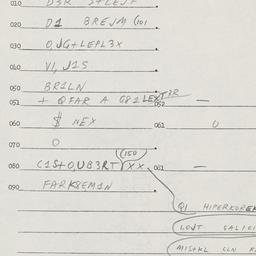 010 D3R
020 D1 BREJM (101
030 O,JG+LEPL3X
040 VI, J1S
050 BR1LN
051 + QFAR A G81LEXT3R 052 —
060 $ NEX 061 0
070 0
080 C1S+0,UB3RT (XX 081 —
(150
090 FARK8EM1N
Q1 HIPERKOREK
LOJT GALICI
MISTAKL CLN